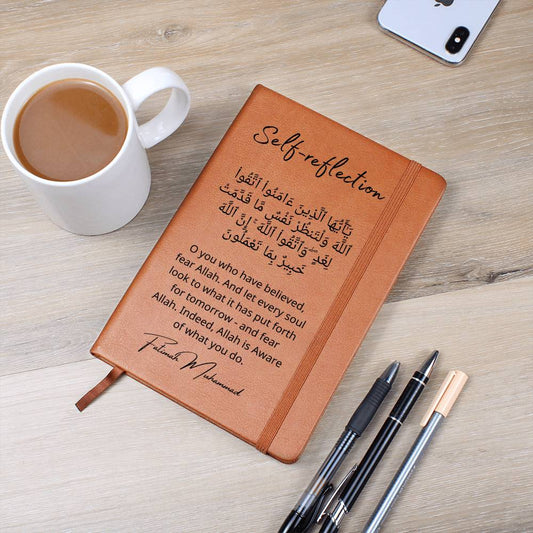 Self-reflection
يَـٰٓأَيُّهَا ٱلَّذِينَ ءَامَنُوا۟ ٱتَّقُوا۟
ٱللَّهَ وَلْتَنظُرْ نَفْسٌ مَّا قَدَّمَتْ
لِغَدٍ ۖ وَٱتَّقُوا۟ ٱللَّهَ ۚ إِنَّ ٱللَّهَ
خَبِيرٌۢ بِمَا تَعْمَلُونَ
O you who have believed,
fear Allah. And let every soul
look to what it has put forth
for tomorrow - and fear
Allah. Indeed, Allah is Aware
of what you do.
Fatimah Muhammad